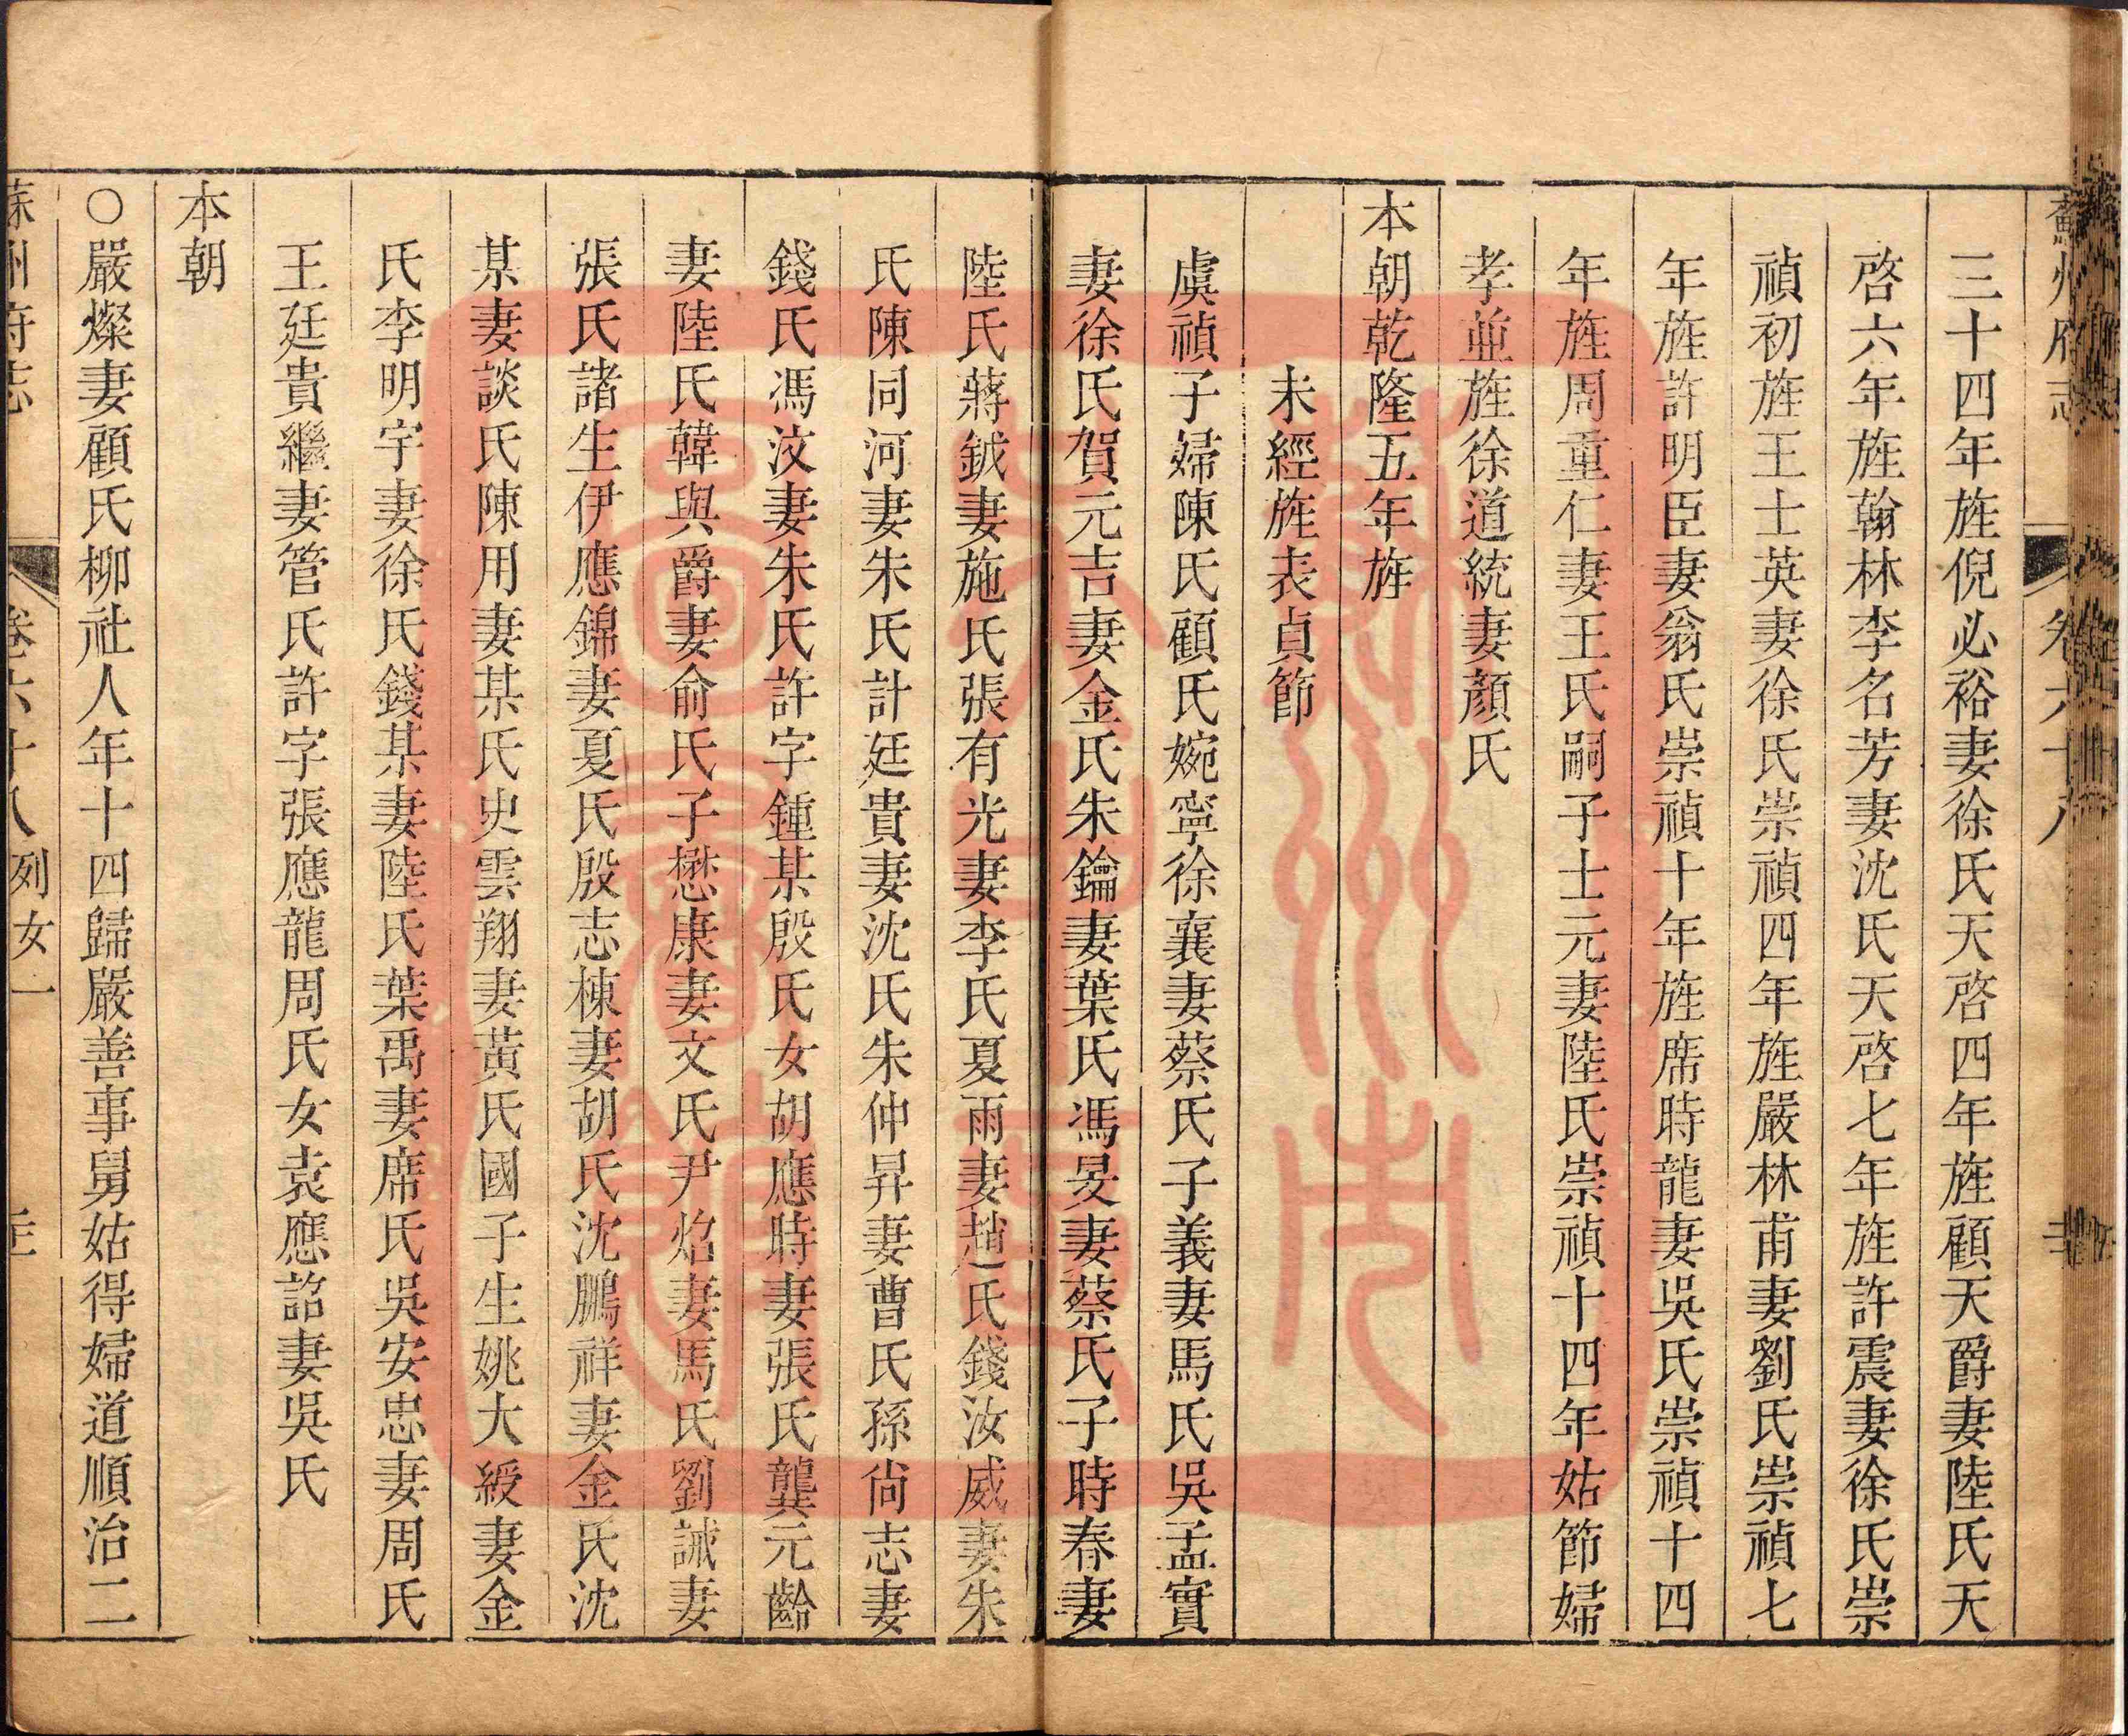 蘇州府志 卷六十八
三十四年旌倪必裕妻徐氏天啓四年旌顧天爵妻陸氏天
啓六年旌翰林李名芳妻沈氏天啓七年旌許震妻徐氏崇
禎初旌王士英妻徐氏崇禎四年旌嚴林甫妻劉氏崇禎七
年旌許明臣妻翁氏崇禎十年旌席時龍妻吳氏崇禎十四
年旌周重仁妻王氏嗣子士元妻陸氏崇禎十四年姑節婦
孝並旌徐道統妻顏氏
本朝乾隆五年旌
未經旌表貞節
虞禎子婦陳氏顧氏婉寧徐襄妻蔡氏子義妻馬氏吳孟實
妻徐氏賀元吉妻金氏朱鑰妻葉氏馮旻妻蔡氏子時春妻
陸氏蔣鉞妻施氏張有光妻李氏夏雨妻趙氏錢汝威妻朱
氏陳同河妻朱氏計廷貴妻沈氏朱仲昇妻曹氏孫尙志妻
錢氏馮汶妻朱氏許字鍾某殷氏女胡應時妻張氏龔元齡
妻陸氏韓與爵妻俞氏子懋康妻文氏尹焰妻馬氏劉諴妻
張氏諸生伊應錦妻夏氏殷志棟妻胡氏沈鵬祥妻金氏沈
某妻談氏陳用妻某氏史雲翔妻黃氏國子生姚大綬妻金
氏李明宇妻徐氏錢某妻陸氏葉禹妻席氏吳安忠妻周氏
王廷貴繼妻管氏許字張應龍周氏女袁應詔妻吳氏
本朝
○嚴燦妻顧氏柳社人年十四歸嚴善事舅姑得婦道順治二
蘇州府志 卷六十八 列女一